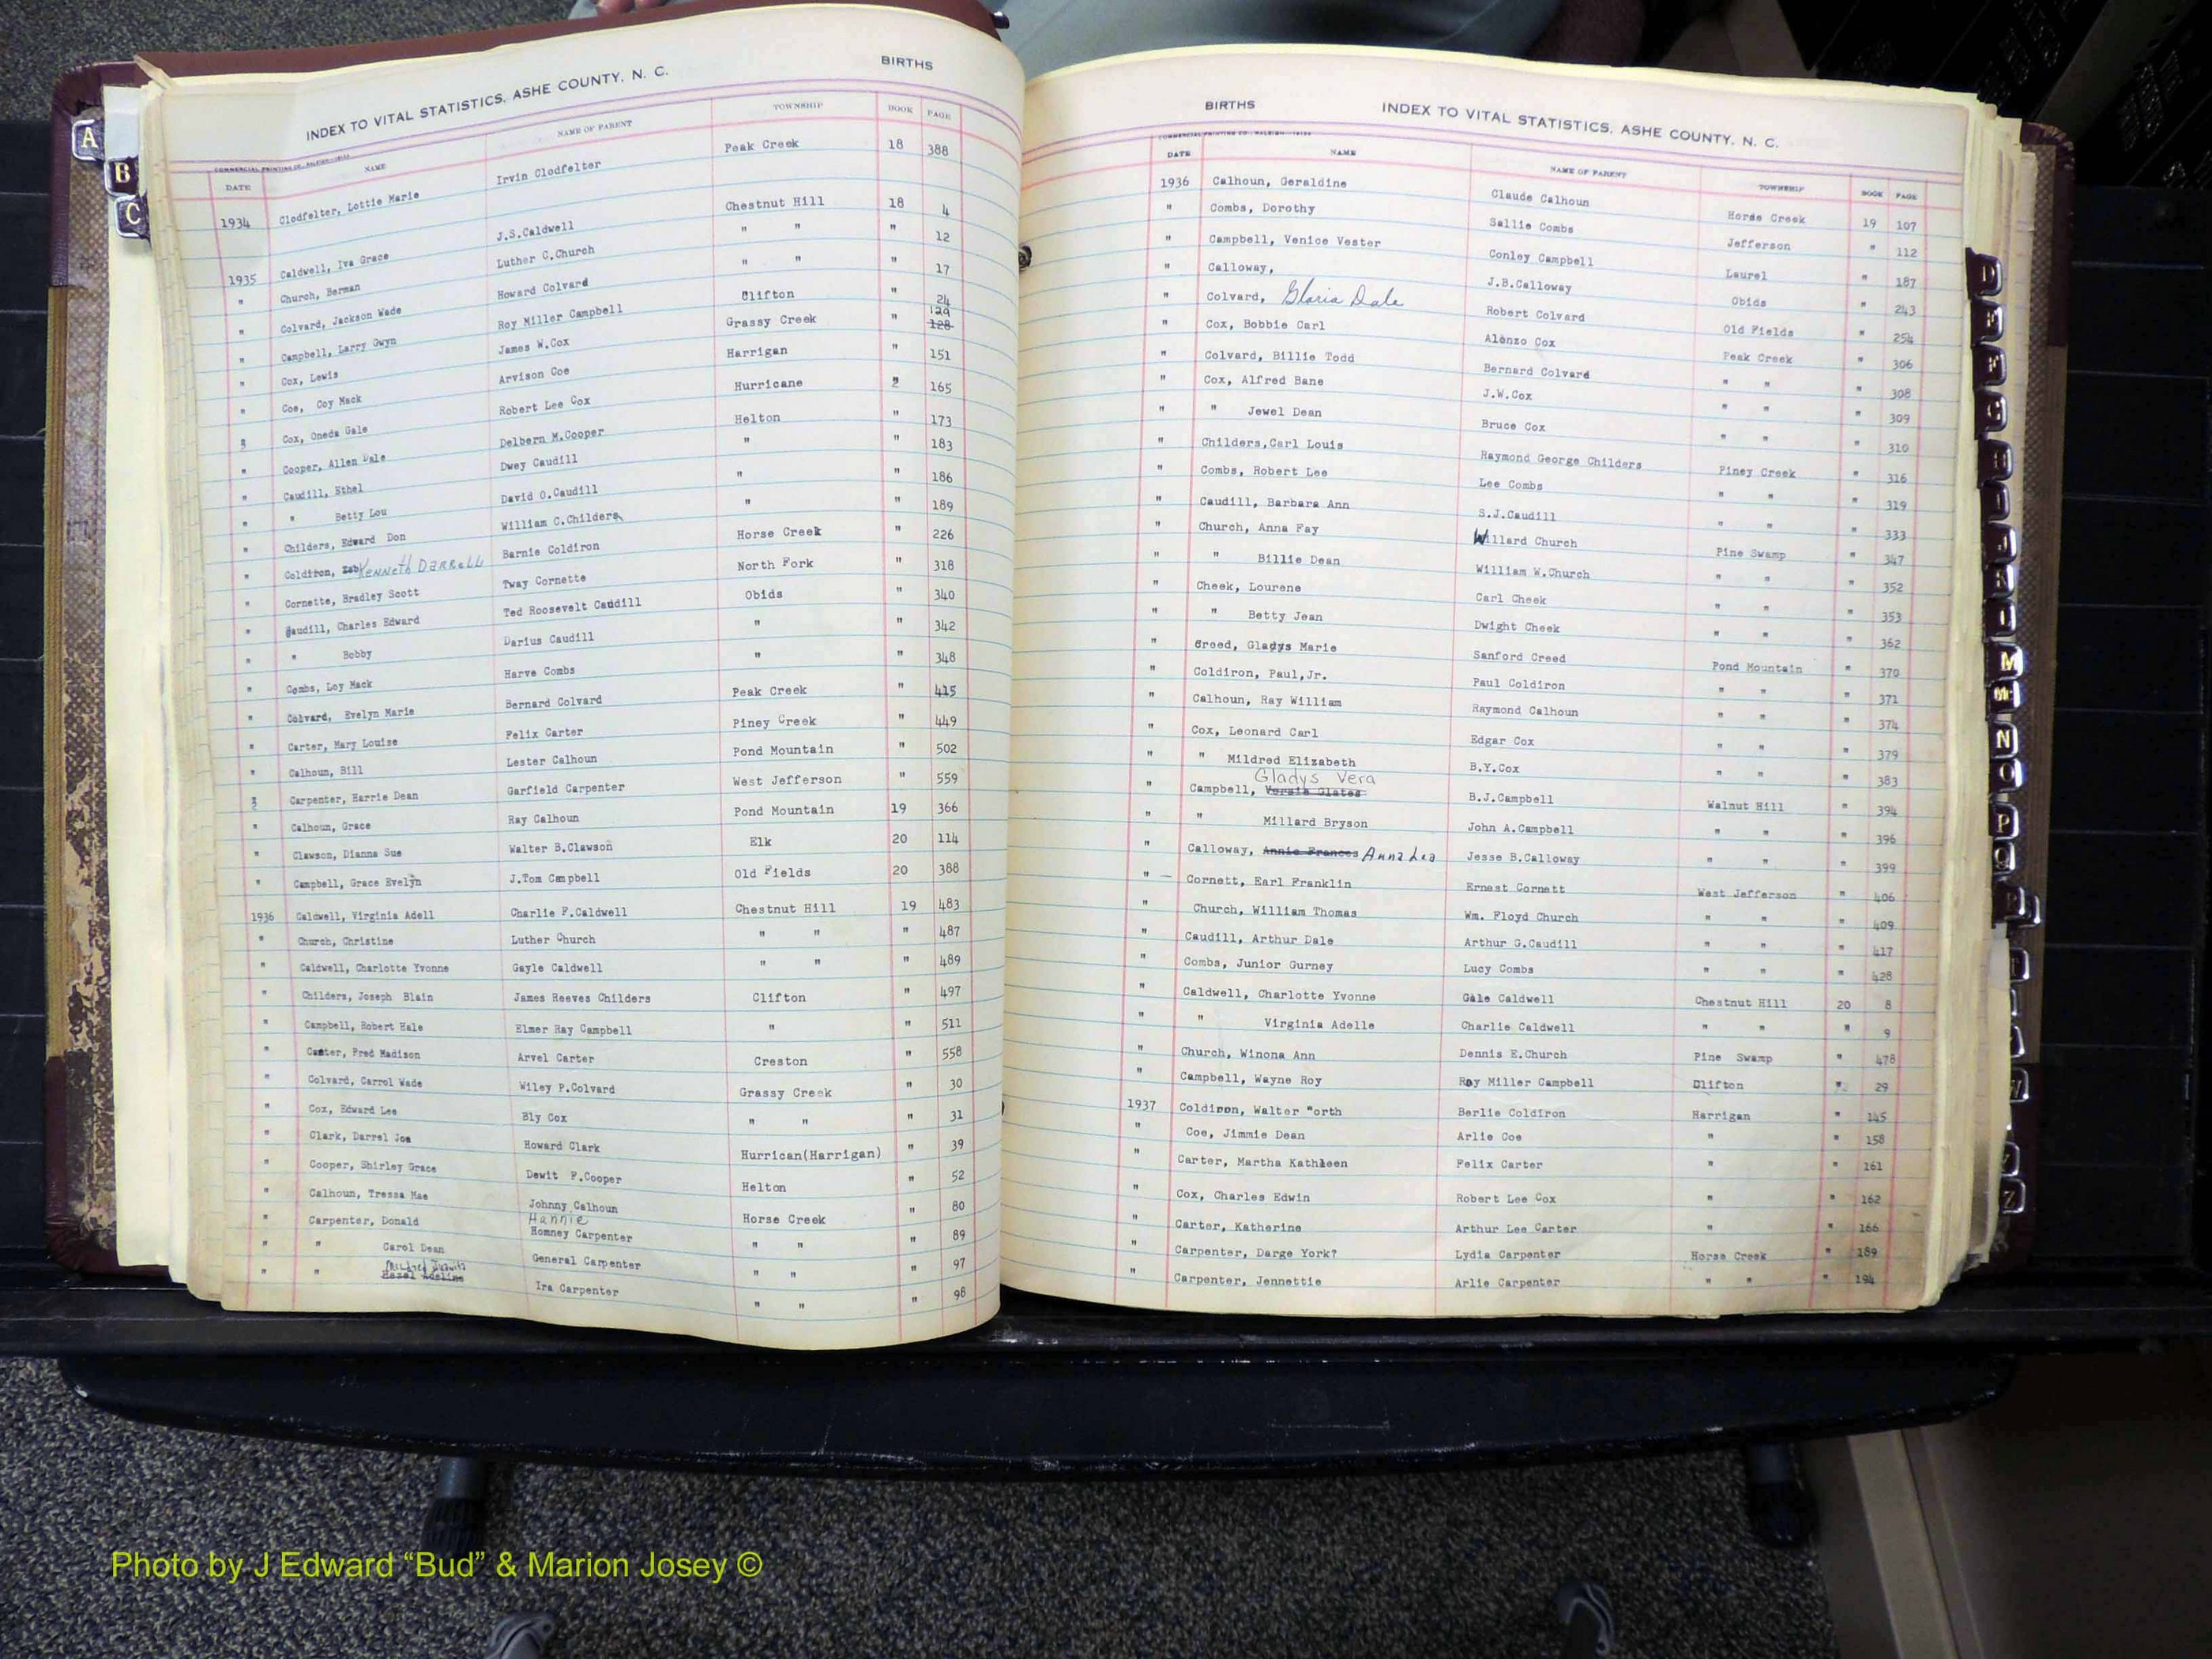 INDEX TO VITAL STATISTICS, ASHE COUNTY, N. C. BIRTHS
DATE NAME NAME OF PARENT TOWNSHIP BOOK PAGE
1934 Clodfelter, Lottie Marie Irvin Clodfelter Peak Creek 18 388
1935 Caldwell, Iva Grace J.S.Caldwell Chestnut Hill 18 4
" Church, Berman Luther C.Church " " " 12
" Colvard, Jackson Wade Howard Colvard " " " 17
" Campbell, Larry Gwyn Roy Miller Campbell Clifton " 24
" Cox, Lewis James W.Cox Grassy Creek " 129 128
" Coe, Coy Mack Arvison Coe Harrigan " 151
Cox, Oneda Gale Robert Lee Cox Hurricane 2 165
" Cooper, Allen Dale Delbern M.Cooper Helton " 173
" Caudill, Ethel Dwey Caudill " " 183
" " Betty Lou David O.Caudill " " 186
" Childers, Edward Don William C.Childers " " 189
" Coldiron, Kenneth Darrell Barnie Coldiron Horse Creek " 226
" Cornette, Bradley Scott Tway Cornette North Fork " 318
" Caudill, Charles Edward Ted Roosevelt Caudill Obids " 340
" " Bobby Darius Caudill " " 342
" Combs, Loy Mack Harve Combs " " 348
" Colvard, Evelyn Marie Bernard Colvard Peak Creek " 415
" Carter, Mary Louise Felix Carter Piney Creek " 449
" Calhoun, Bill Lester Calhoun Pond Mountain " 502
Carpenter, Harrie Dean Garfield Carpenter West Jefferson " 559
" Calhoun, Grace Ray Calhoun Pond Mountain 19 366
" Clawson, Dianna Sue Walter B.Clawson Elk 20 114
" Campbell, Grace Evelyn J.Tom Campbell Old Fields 20 388
1936 Caldwell, Virginia Adell Charlie F.Caldwell Chestnut Hill 19 483
" Church, Christine Luther Church " " " 487
" Caldwell, Charlotte Yvonne Gayle Caldwell " " " 489
" Childers, Joseph Blain James Reeves Childers Clifton " 497
" Campbell, Robert Hale Elmer Ray Campbell " " 511
" Carter, Fred Madison Arvel Carter Creston " 558
" Colvard, Carrol Wade Wiley P.Colvard Grassy Creek " 30
" Cox, Edward Lee Bly Cox " " " 31
" Clark, Darrel Joe Howard Clark Hurrican(Harrigan) " 39
" Cooper, Shirley Grace Dewit F.Cooper Helton " 52
" Calhoun, Tressa Mae Johnny Calhoun Horse Creek " 80
" Carpenter, Donald Hannie Homney Carpenter " " " 89
" " Carol Dean General Carpenter " " " 97
" " Mildred Hazel Adeline Ira Carpenter " " " 98
BIRTHS INDEX TO VITAL STATISTICS, ASHE COUNTY, N. C.
COMMERCIAL PRINTING CO., RALEIGH
DATE NAME NAME OF PARENT TOWNSHIP BOOK PAGE
1936 Calhoun, Geraldine Claude Calhoun Horse Creek 19 107
" Combs, Dorothy Sallie Combs Jefferson " 112
" Campbell, Venice Vester Conley Campbell Laurel " 187
" Calloway, J.B.Calloway Obids " 243
" Colvard, Gloria Dale Robert Colvard Old Fields " 254
" Cox, Bobbie Carl Alonzo Cox Peak Creek " 306
" Colvard, Billie Todd Bernard Colvard " " " 308
" Cox, Alfred Bane J.W.Cox " " " 309
" " Jewel Dean Bruce Cox " " " 310
" Childers,Carl Louis Raymond George Childers Piney Creek " 316
" Combs, Robert Lee Lee Combs " " " 319
" Caudill, Barbara Ann S.J.Caudill " " " 333
" Church, Anna Fay Willard Church Pine Swamp " 347
" " Billie Dean William W.Church " " " 352
" Cheek, Lourene Carl Cheek " " " 353
" " Betty Jean Dwight Cheek " " " 362
" Creed, Gladys Marie Sanford Creed Pond Mountain " 370
" Coldiron, Paul,Jr. Paul Coldiron " " " 371
" Calhoun, Ray William Raymond Calhoun " " " 374
" Cox, Leonard Carl Edgar Cox " " " 379
" " Mildred Elizabeth B.Y.Cox " " " 383
Gladys Vera
" Campbell, Versie Glates B.J.Campbell Walnut Hill " 394
" " Millard Bryson John A.Campbell " " " 396
" Calloway, Annie Frances Anna Lea Jesse B.Calloway " " " 399
" Cornett, Earl Franklin Ernest Cornett West Jefferson " 406
" Church, William Thomas Wm. Floyd Church " " " 409
" Caudill, Arthur Dale Arthur G.Caudill " " " 417
" Combs, Junior Gurney Lucy Combs " " " 428
" Caldwell, Charlotte Yvonne Gale Caldwell Chestnut Hill 20 8
" " Virginia Adelle Charlie Caldwell " " " 9
" Church, Winona Ann Dennis E.Church Pine Swamp " 478
" Campbell, Wayne Roy Roy Miller Campbell Clifton " 29
1937 Coldiron, Walter "orth Berlie Coldiron Harrigan " 145
" Coe, Jimmie Dean Arlie Coe " " 158
" Carter, Martha Kathleen Felix Carter " " 161
" Cox, Charles Edwin Robert Lee Cox " " 162
" Carter, Katherine Arthur Lee Carter " " 166
" Carpenter, Darge York? Lydia Carpenter Horse Creek " 189
" Carpenter, Jennettie Arlie Carpenter " " " 194
A
B
C
D
E
F
G
H
I
J
K
L
M
Mc
N
O
P
Q
R
Z
Photo by J Edward “Bud” & Marion Josey ©